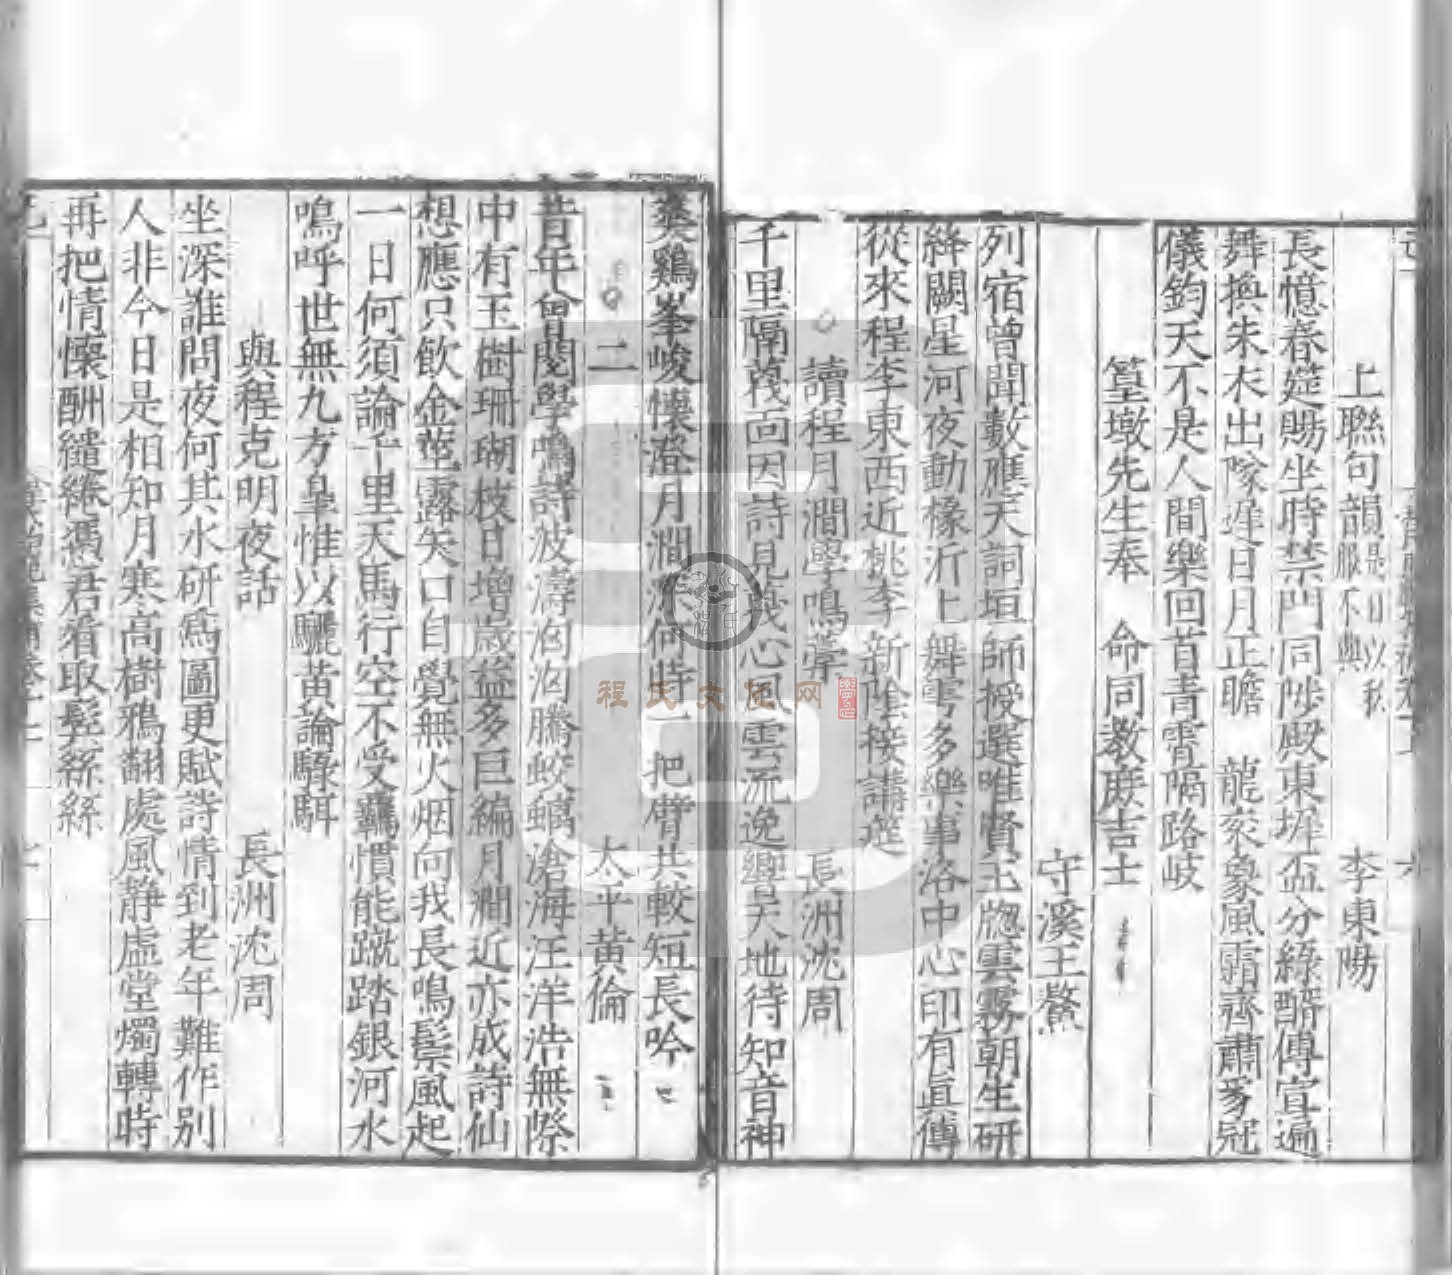 上聯句韻是日以秋服不與 李東陽
長憶春筵賜坐時禁門同陟殿東墀盃分綠醑傳宣遍
舞換朱衣出隊遲日月正瞻 龍袞象風霜齊肅豸冠
儀鈞天不是人間樂回首青霄隔路岐
篁墩先生奉 命同教庶吉士
守溪王鏊
列宿曾聞數應天詞垣師授選唯賢玉牕雲霧朝生研
絳闕星河夜動椽沂上舞雩多樂事洛中心印有真傳
從來程李東西近桃李新陰接講筵
讀程月澗學鳴藁 長洲沈周
千里隔茂面因詩見茂心風雲流逸響天地待知音神
奕鷄峯峻懷澄月澗深何時一把臂共較短長吟
二 太平黃倫
昔年曾閱學鳴詩波濤洶洶騰蛟螭滄海汪洋浩無際
中有玉樹珊瑚枝日增歲益多巨編月澗近亦成詩仙
想應只飲金莖露矢口自覺無火烟向我長鳴鬃風起
一日何須論千里天馬行空不受羈慣能蹴踏銀河水
鳴呼世無九方臯惟以驪黃論騄駬
與程克明夜話 長洲沈周
坐深誰問夜何其水研爲圖更賦詩情到老年難作別
人非今日是相知月寒高樹鴉翻處風静虛堂燭轉時
再把情懷酬繾綣憑君看取鬂絲絲
程氏文化网